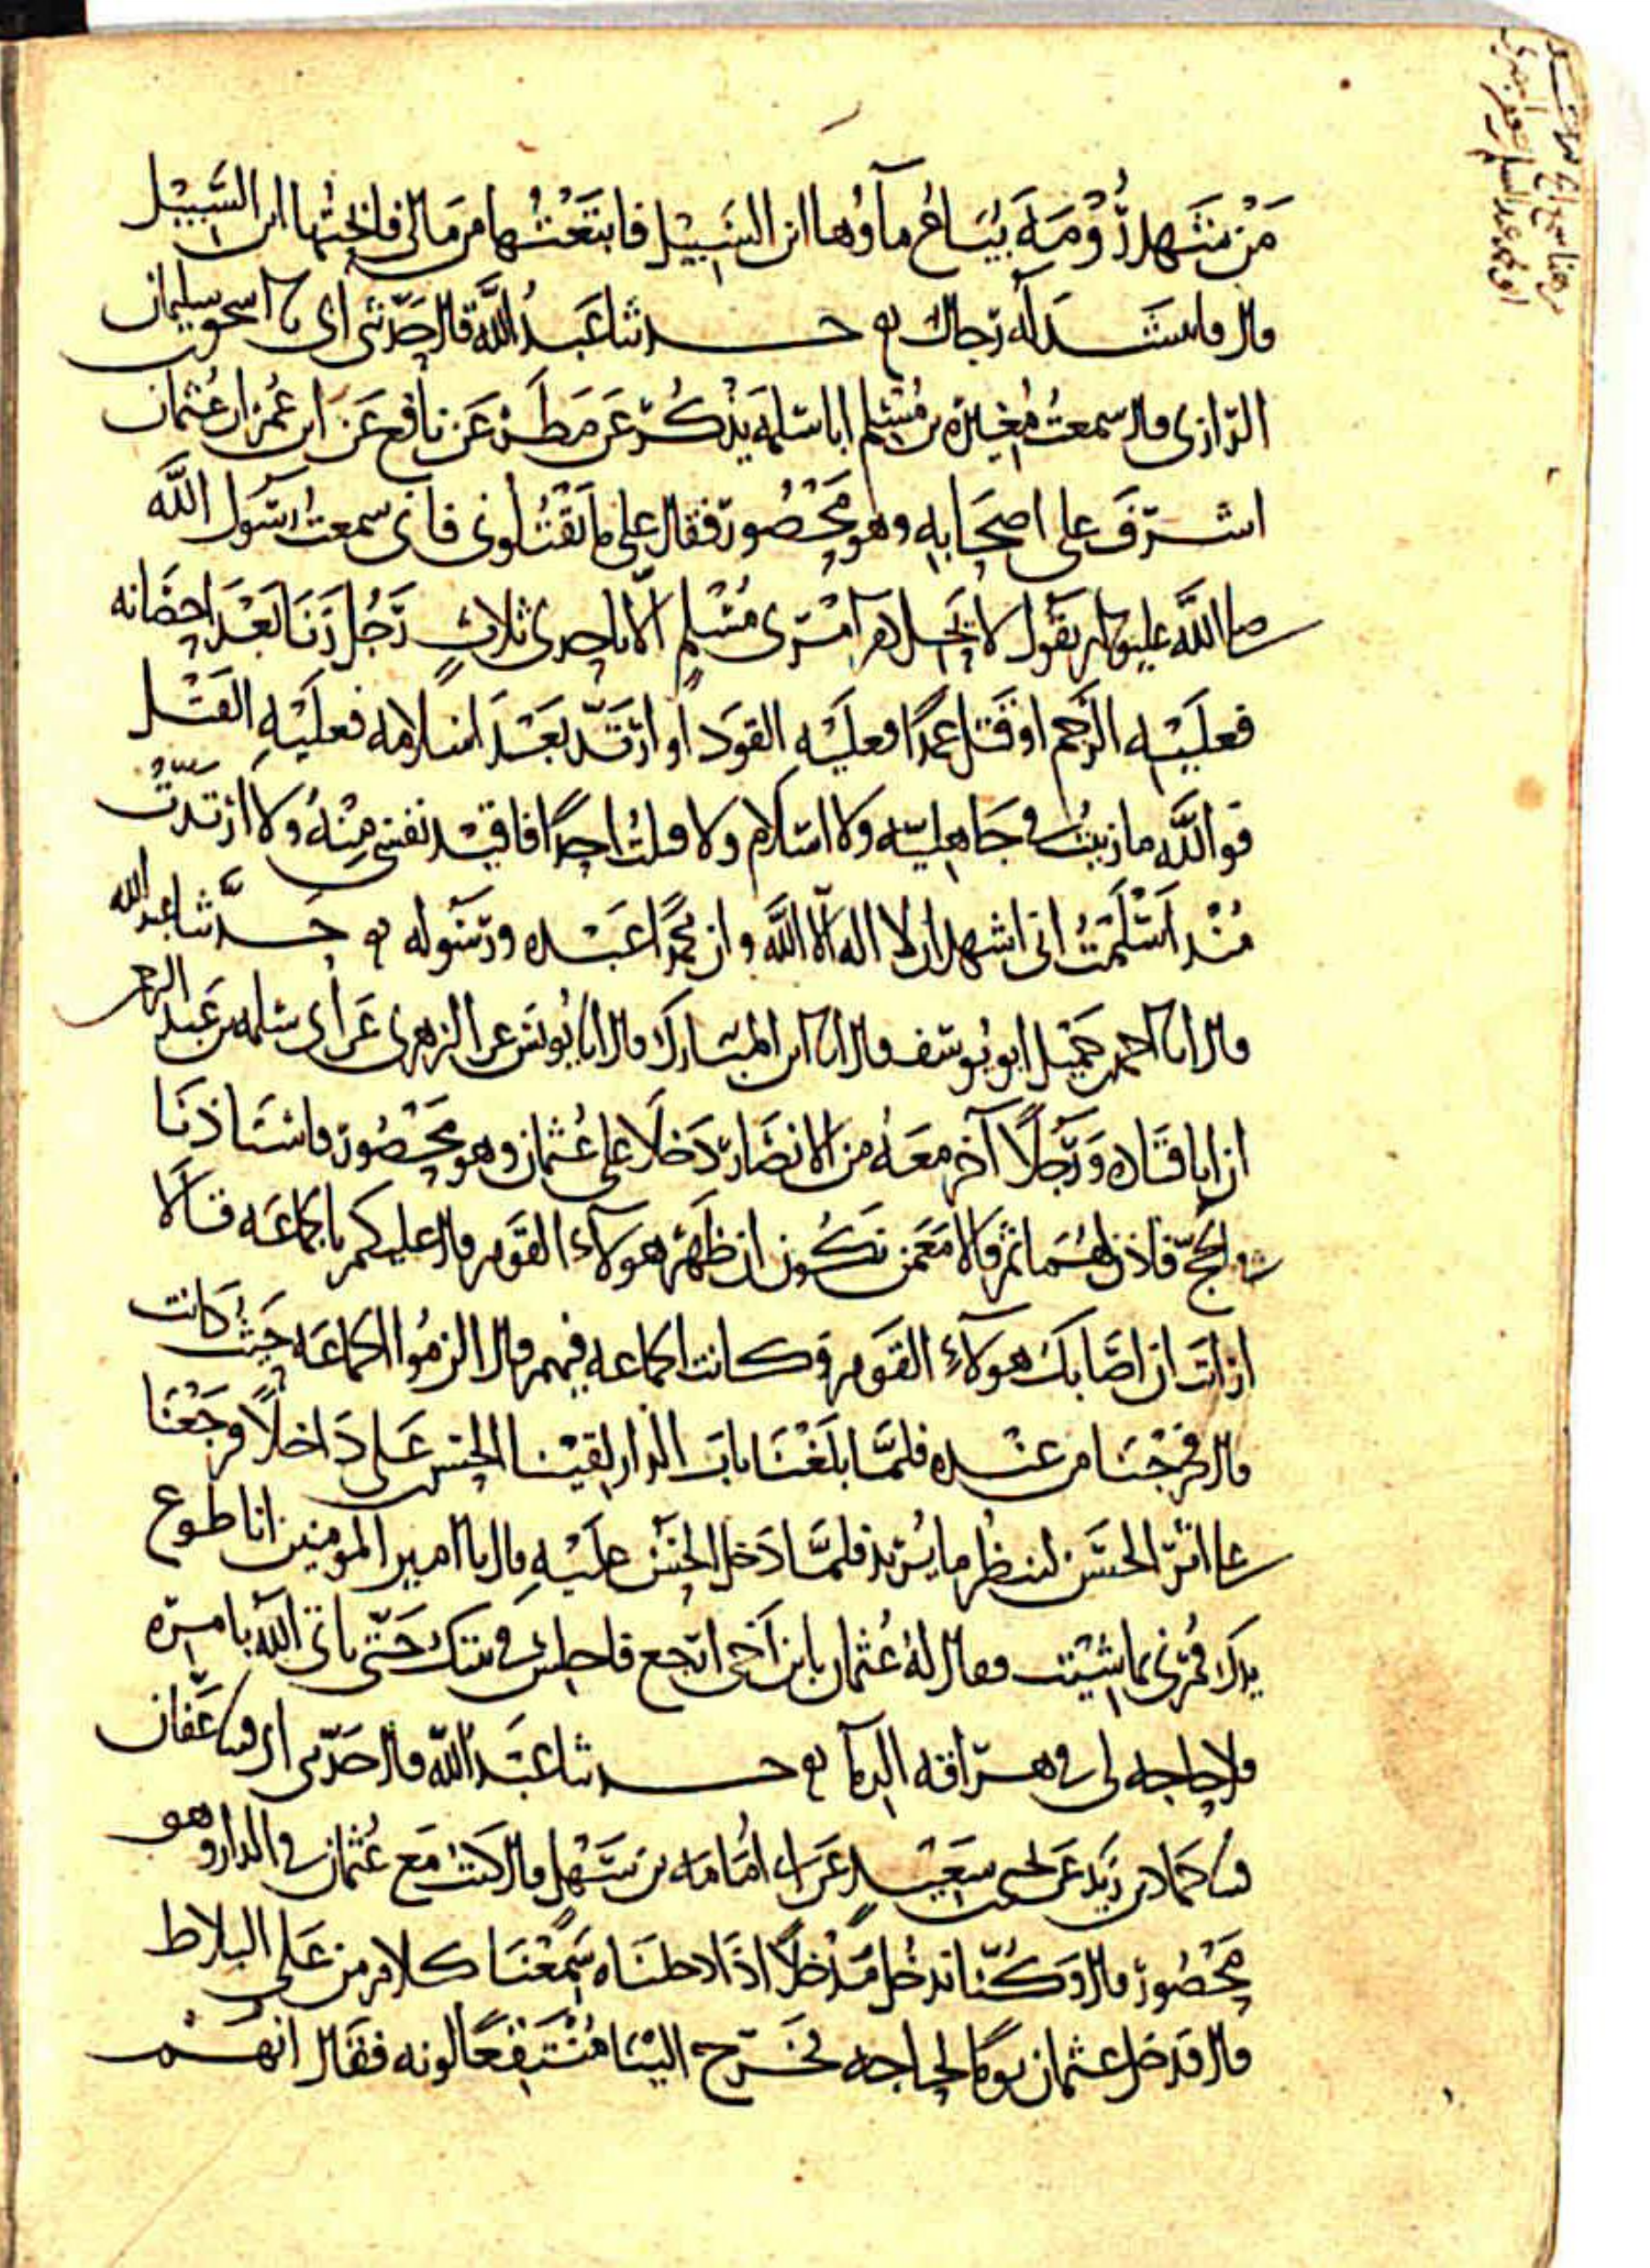 مَنْ شَهِدَ رُوْمَةَ يُبَاعُ مآؤُها ابن السَّبِيْل فابتَعْتُها من مَالى فابحْتُها ابن السَّبِيْل
قال فانتشد له رجال حدثنا عَبدُ اللَّه قال حدّثنى ابى نا اسحق بن سليمان
الرّازى قال سمعتُ مُغِيرَة بن مُسْلم ابا سَلمَه يذْكُر عَن مَطَر عَن نافع عَن ابن عُمَر ان عُثمان
اشرفَ على اصحَابِه وهو مَحْصُور فقال على ما تَقْتُلونى فانى سمعتُ رسُول اللَّه
صلى اللَّه عليه وسلم يقُول لا يَحِل دم امْرى مُسْلم الّا باحدى ثلاث رَجُل زَنَا بَعْدَ احصَانه
فعلَيْه الرَّجم او قَتَل عمدًا فعليْه القوَد او ارْتَدّ بَعْدَ اسلامه فعلَيْهِ القَتْل
فوالله ما زنيتُ فى جَاهِليّه ولا اسلام ولا قتلتُ احدًا فاقيْد نفسى مِنْهُ ولا ارْتَدَدتُ
مُنْذ اَسْلَمْتُ انى اشهد ان لا اله الّا اللَّه وان محمدًا عَبْده ورَسُوله حدَّثنا عبد الله
قال انا احمد بن جميْل ابو يُوسف قال انا ابن المبَارك قال انا يُونس عن الزهرى عَن ابى سلمه بن عَبد الرحمن
ان ابا قتَاده وَرَجُلاً آخر معَهُ من الانصَار دَخلا على عُثمان وهو مَحْصُور فاستَاذنَا
فى الحجّ فاذن لهُمَا ثم قالا مَعَ من نكُون ان ظَهَر هولآء القَوم قال عليكم بالجماعَه قالَا
ارايت ان اصَابك هولآء القَوم وكانت الجماعه فيهم قال الزمُوا الجماعَه حَيْثُ كانت
قال فخرجْنَا من عنْده فلمَّا بلَغْنَا بابَ الدار لقيْنا الحسن بن عَلى دَاخلاً فرجَعْنَا
على اثر الحسَن لننظُر ما يُريْد فلمَّا دَخل الحَسَنُ عليْهِ قال يا امير المومنين انا طوع
يدك فمُرْنى بما شِيْت فقال لهُ عُثمان يا بن اَخى ارجع فاجلس فى بيتك حَتّى ياتى اللّه بامره
فلا حاجه لى فى هراقه الدما حدثنا عَبدُ اللّه قال حدّثنى ابى وعَفّان
نا حمّاد بن زيد عَن يحيى بن سعيْد عَن ابى امُامَه بن سَهْل قال كنتُ مَعَ عُثمان فى الدار وهو
مَحْصُور قال وَكُنّا ندخُل مَدْخلاً اذا دخلنَاه سَمعْنَا كلام من عَلى البلاط
قال فدَخل عثمان يومًا لحاجه فخرج اليْنَا مُنْتقعًا لونه فقال انهُم